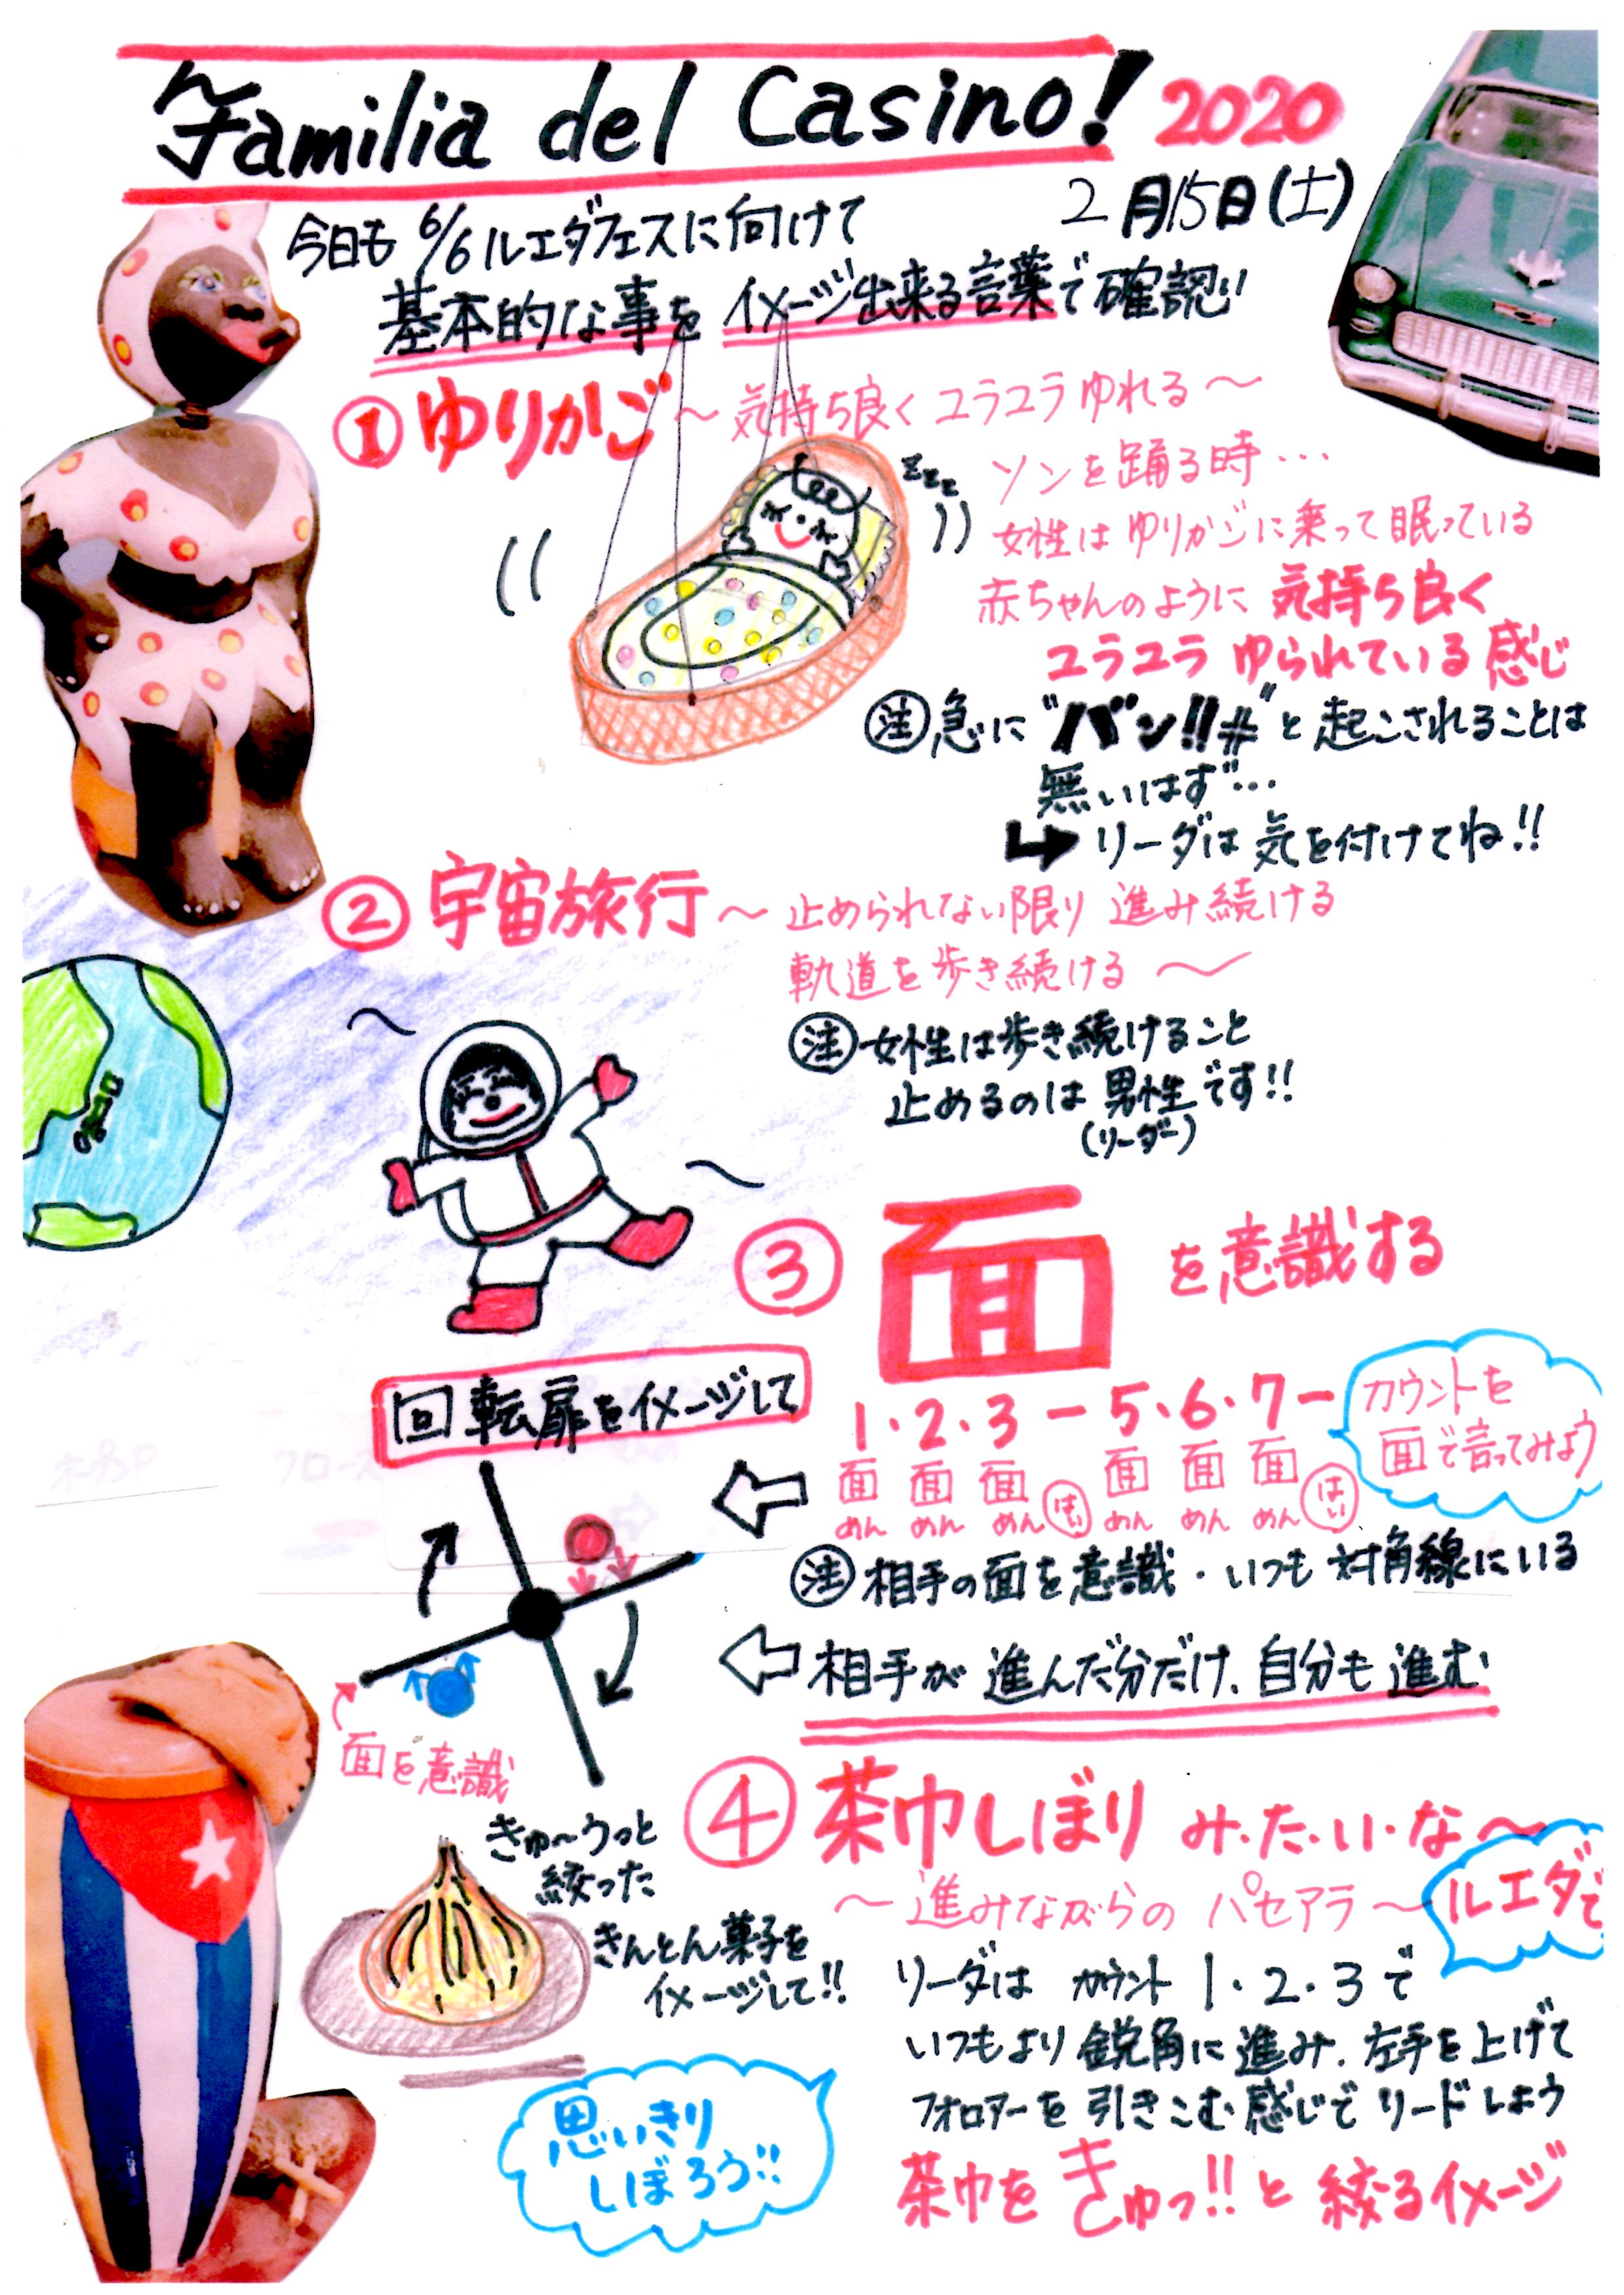 Familia del Casino! 2020
2月15日(土)
今日も 6/6 ルエダフェスに向けて
基本的な事を イメージ出来る言葉で確認!!
① ゆりかご ～気持ち良く ユラユラ ゆれる～
zzz
ソンを踊る時…
女性は ゆりかごに乗って眠っている
赤ちゃんのように 気持ち良く
ユラユラ ゆられている感じ
注 急に "バン!!#" と 起こされることは
無いはず…
リーダは 気を付けてね!!
② 宇宙旅行 ～ 止められない限り 進み続ける
軌道を歩き続ける ～
注 女性は歩き続けること
止めるのは 男性です!!
(リーダー)
③ 面 を意識する
回転扉をイメージして
1・2・3－5・6・7－
面 面 面 面 面 面
めん めん めん はい めん めん めん はい
カウントを
面で言ってみよう
注 相手の面を意識・いつも対角線にいる
相手が 進んだ分だけ、自分も進む
面を意識
④ 茶巾しぼり み・た・い・な～
～進みながらの パセアラ～
ルエダで
きゅ～うっと
絞った
きんとん菓子を
イメージして!!
リーダは カウント 1・2・3で
いつもより 鋭角に 進み、左手を上げて
フォロアーを 引きこむ 感じで リードしよう
茶巾を きゅっ!! と 絞るイメージ
思いきり
しぼろう!!